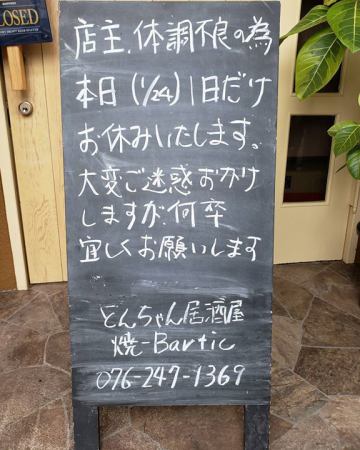 LOSED
店主、体調不良の為
本日(1/24)1日だけ
お休みいたします。
大変ご迷惑おかけ
しますが、何卒
宜しくお願いします
とんちゃん居酒屋
焼-Bartic
076-247-1369